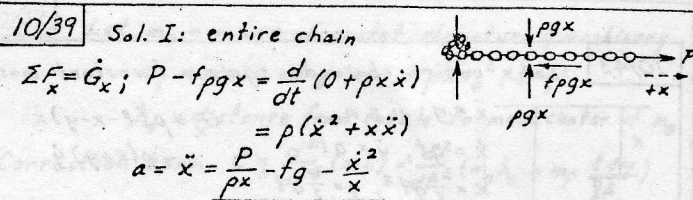 10/39 Sol. I: entire chain
ΣFₓ = Ġₓ ; P - fρgx = d/dt (0 + ρxẋ)
= ρ(ẋ² + xẍ)
a = ẍ = P/ρx - fg - ẋ²/x
ρgx
P
fρgx
+x
ρgx